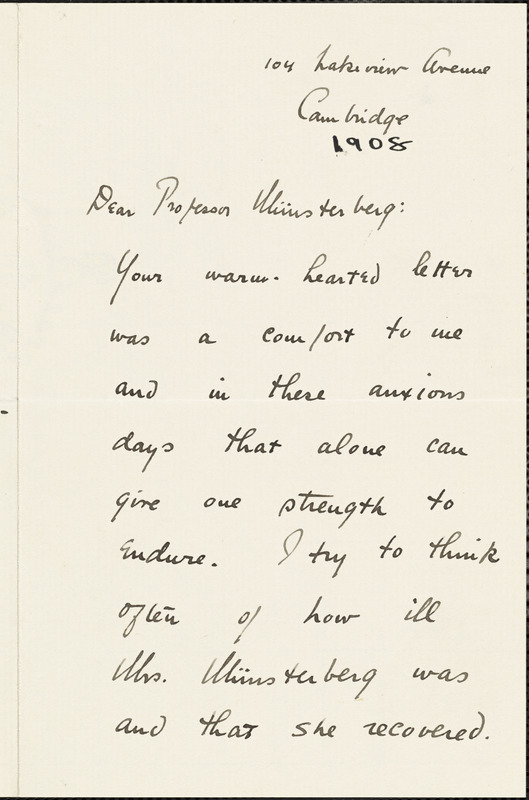 104 Lakeview Avenue
Cambridge
1908
Dear Professor Münsterberg:
Your warm-hearted letter
was a comfort to me
and in these anxious
days that alone can
give one strength to
endure. I try to think
often of how ill
Mrs. Münsterberg was
and that she recovered.